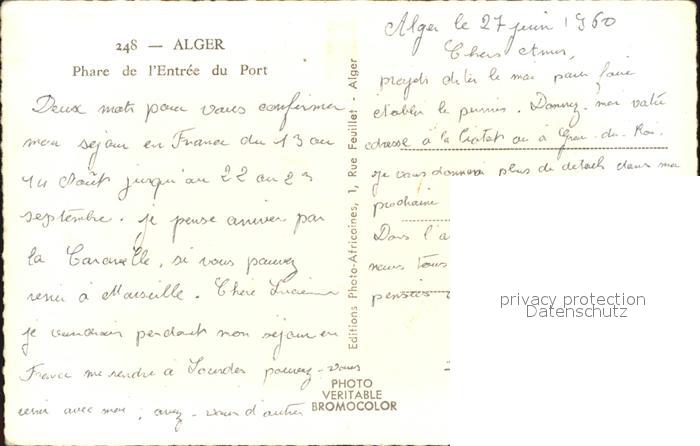 248 — ALGER
Phare de l'Entrée du Port
Alger le 27 juin 1960
Chers Amis,
Deux mots pour vous confirmer
mon séjour en France du 13 au
14 Août jusqu'au 22 au 23
septembre. je pense arriver par
la Caravelle, si vous pouvez
venir à Marseille. Chère Lucienne
je voudrais pendant mon séjour en
France me rendre à Lourdes pouvez-vous
venir avec moi, avez-vous d'autres
projets dites le moi pour faire
établir le permis. Donnez-moi votre
adresse à la Ciotat ou à Grau-du-Roi.
je vous donnerai plus de détails dans ma
prochaine
Dans l'a
nous tous
pensées
Editions Photo-Africaines, 1, Rue Feuillet - Alger
PHOTO
VERITABLE
BROMOCOLOR
privacy protection
Datenschutz